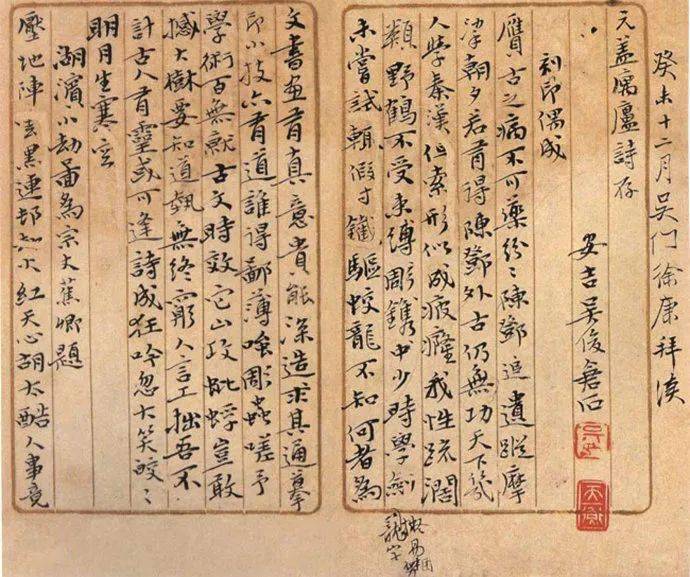 癸未十二月吳门徐康拜讀
元蓋寓廬詩存
安吉吳俊倉石
刻印偶成
贗古之病不可藥紛〻陳鄧追遺蹤摩
挲朝夕若有得陳鄧外古仍無功天下幾
人學秦漢但索形似成疲癃我性疏闊
類野鶴不受束縛彫鐫中少時學劍
未嘗試輒假寸鐵驅蛟龍不知何者為
龍字
文書畫有真意貴能深造求其通摹
印小技亦有道誰得鄙薄嗤彫蟲嗟予
學術百無就古文時效它山攻蚍蜉豈敢
撼大樹要知道藝無終窮人言工拙吾不
計古人有靈或可逢詩成狂吟忽大笑皎〻
明月生寒空
湖濱小劫圖為宗丈蕉卿題
壓地陣雲黑連邨劫火紅天心胡太酷人事竟